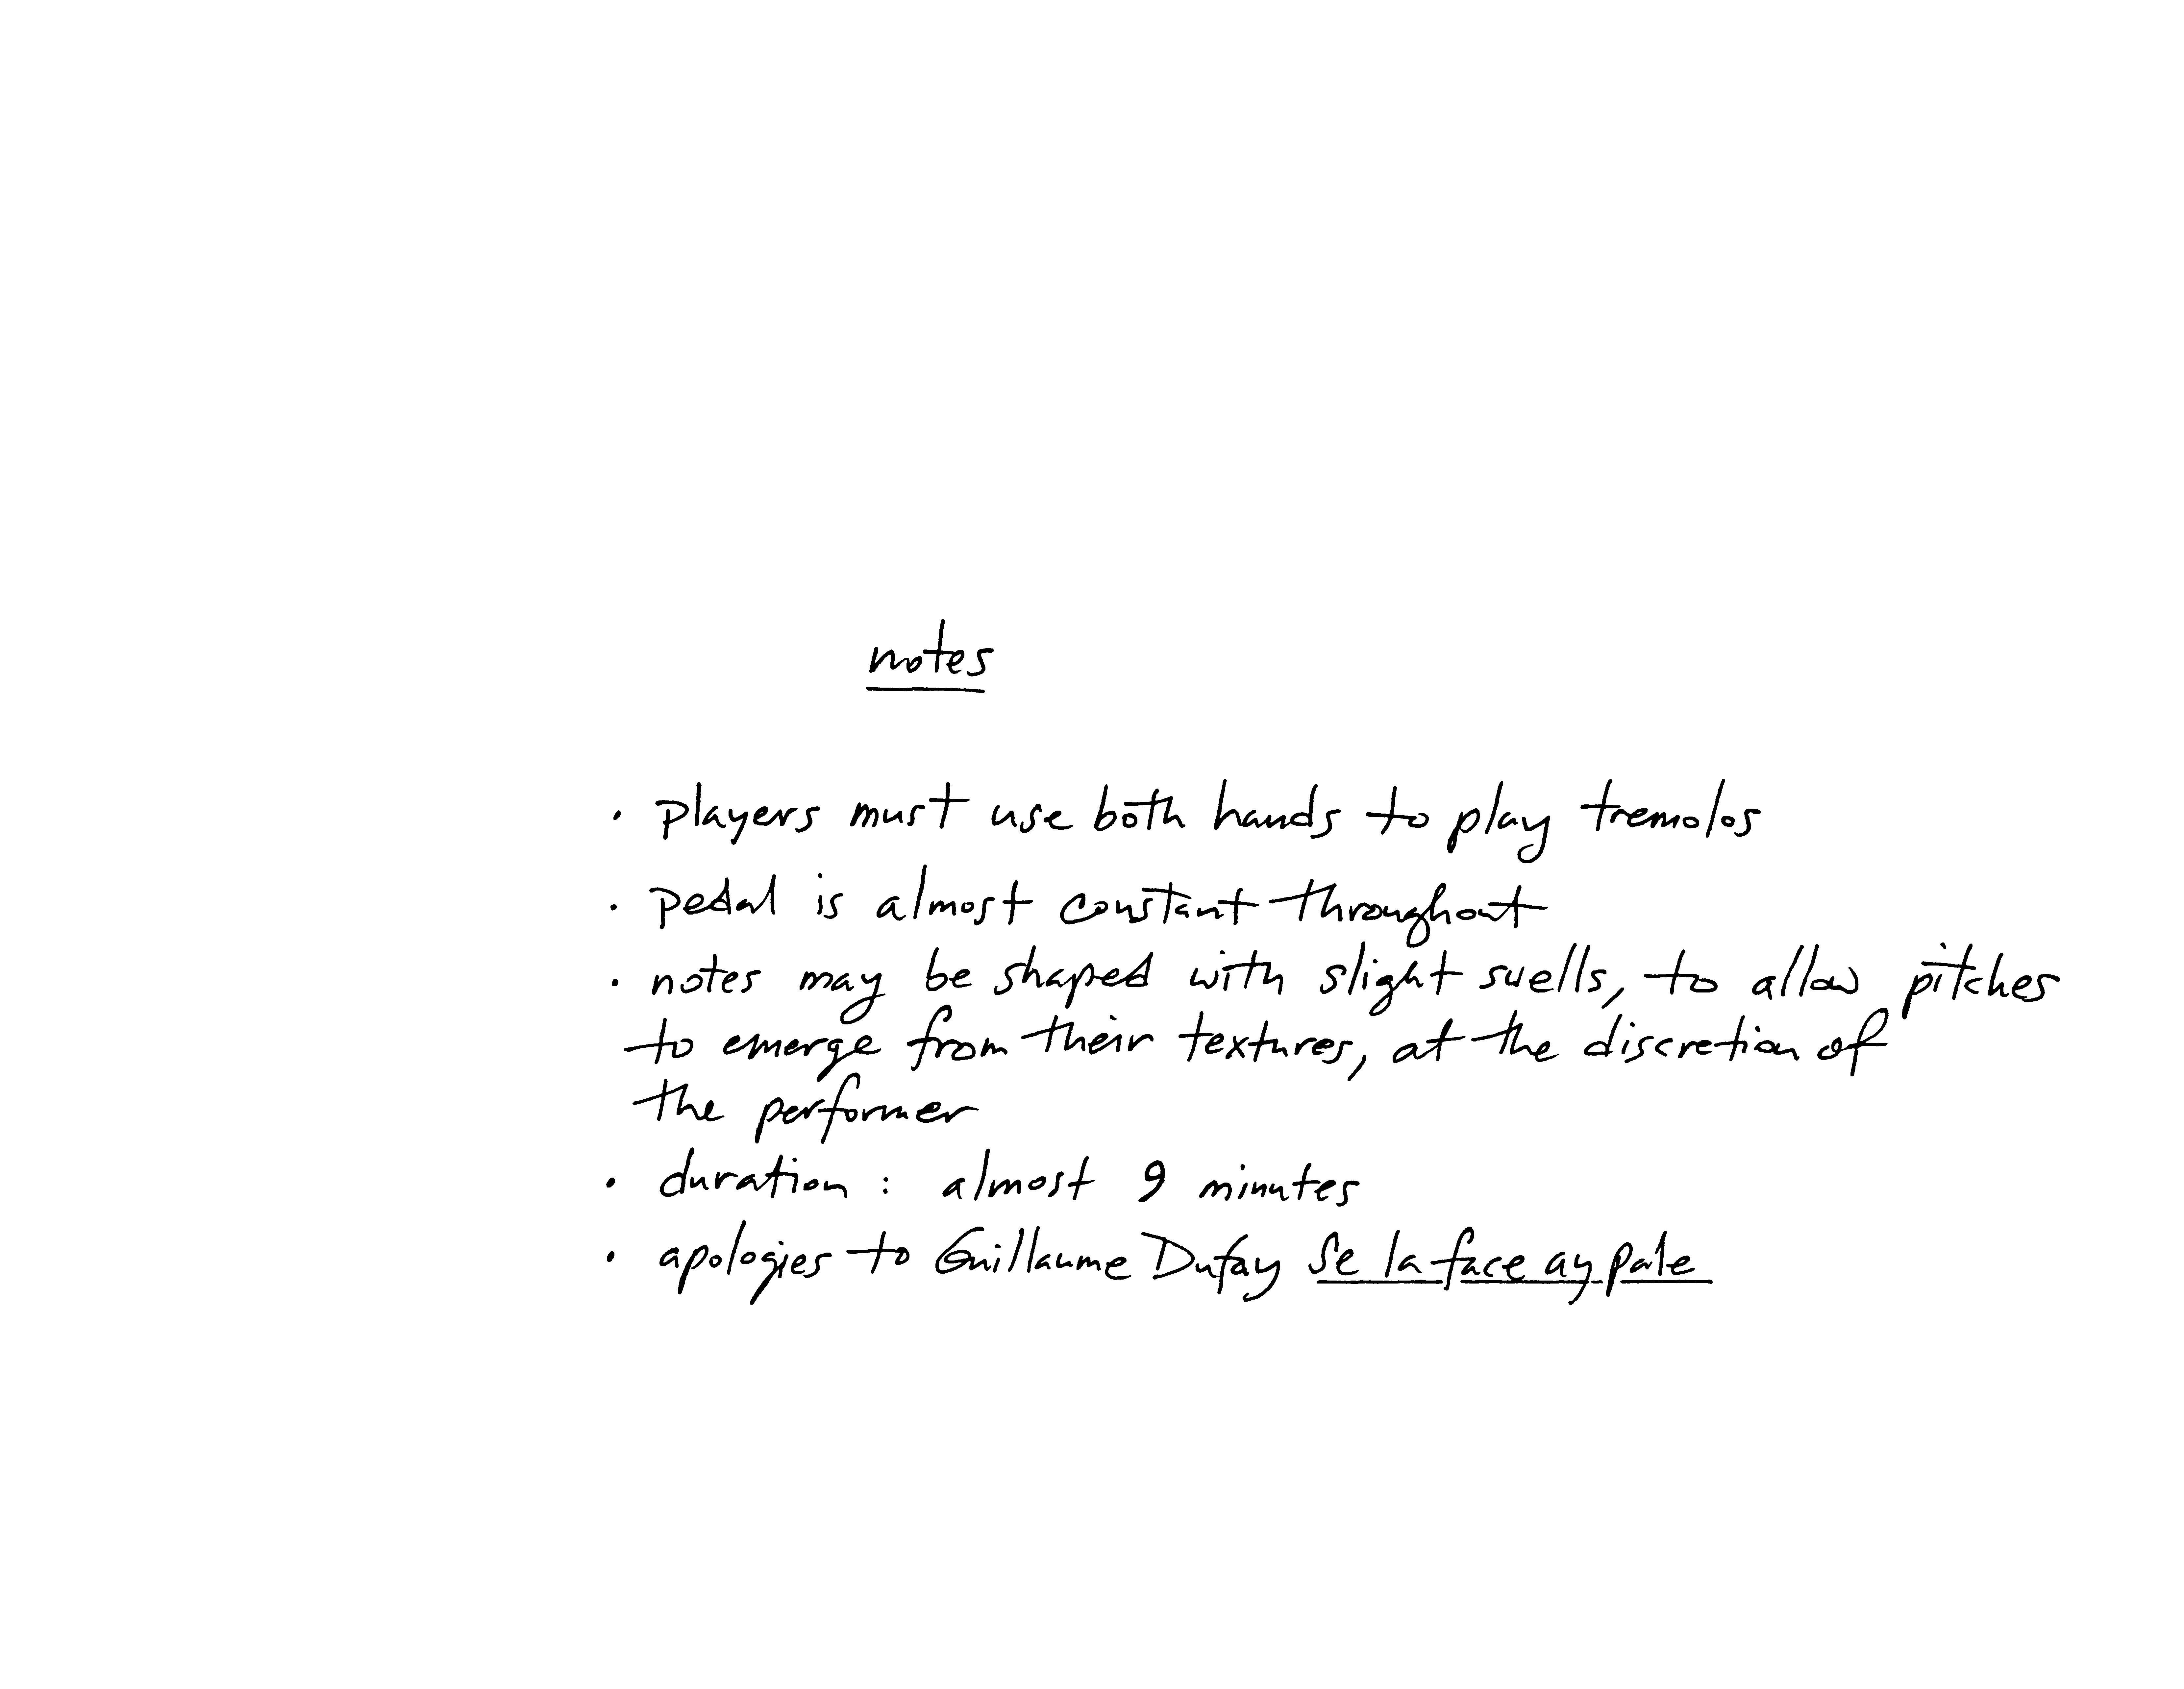 notes
· players must use both hands to play tremolos
· pedal is almost constant throughout
· notes may be shaped with slight swells, to allow pitches
to emerge from their textures, at the discretion of
the performer
· duration : almost 9 minutes
· apologies to Guillaume Dufay Se la face ay pale